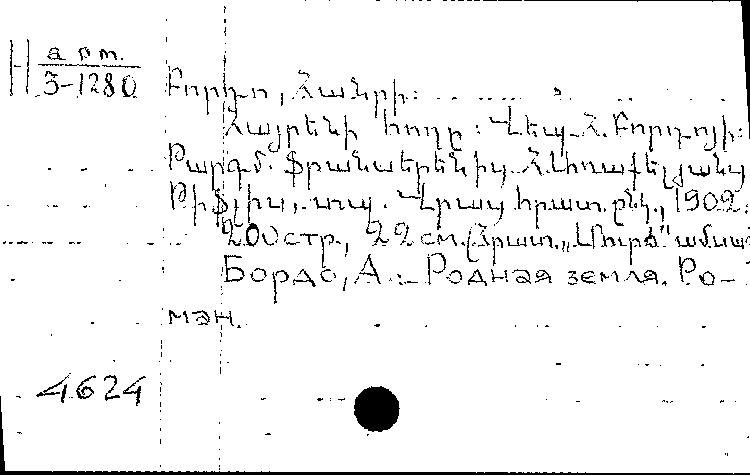 Н арт.
3-1280
Բորդո, Հանրի:
Հայրենի հողը: Վեպ Հ. Բորդոյի:
Թարգմ. ֆրանսերենից Հ. Առաքելյանց
Թիֆլիս, տպ. Վրաց հրատ. ընկ., 1902.
200 стр., 22 см. (Հրատ. „Մուրճ" ամսագ
Бордо, А. Родная земля. Ро-
ман.
4624